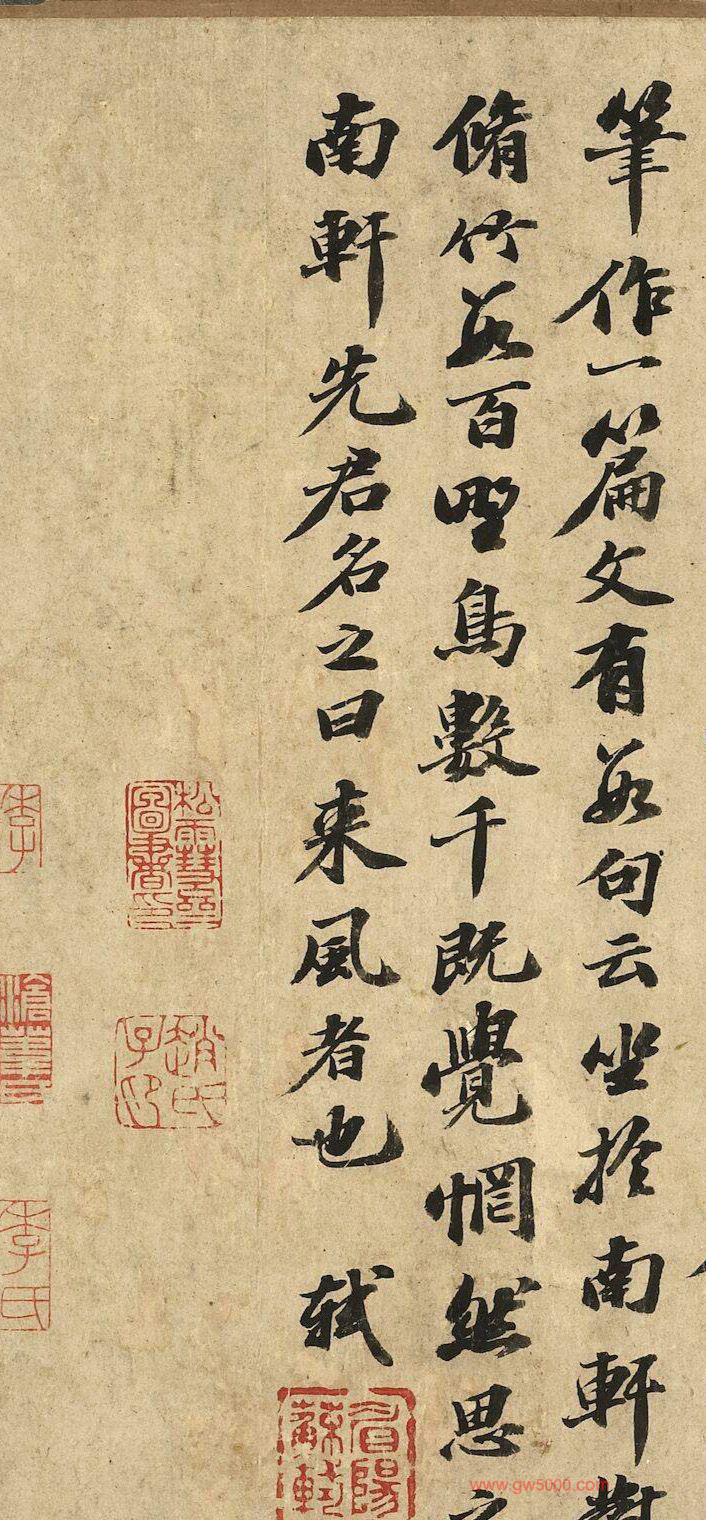 筆作一篇文有數句云坐於南軒對
脩竹數百野鳥數千既覺惘然思之
南軒先君名之曰来風者也 軾
眉陽蘇軾
松雪齋圖書印
趙氏子昂
李氏
www.gw5000.com